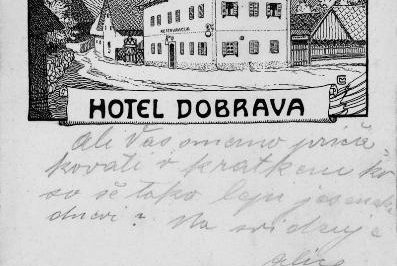 RESTAVRACIJA
HOTEL DOBRAVA
Ali Vas smemo priča-
kovati v kratkem ko
so še tako lepi jesenski
dnevi? Na svidenje